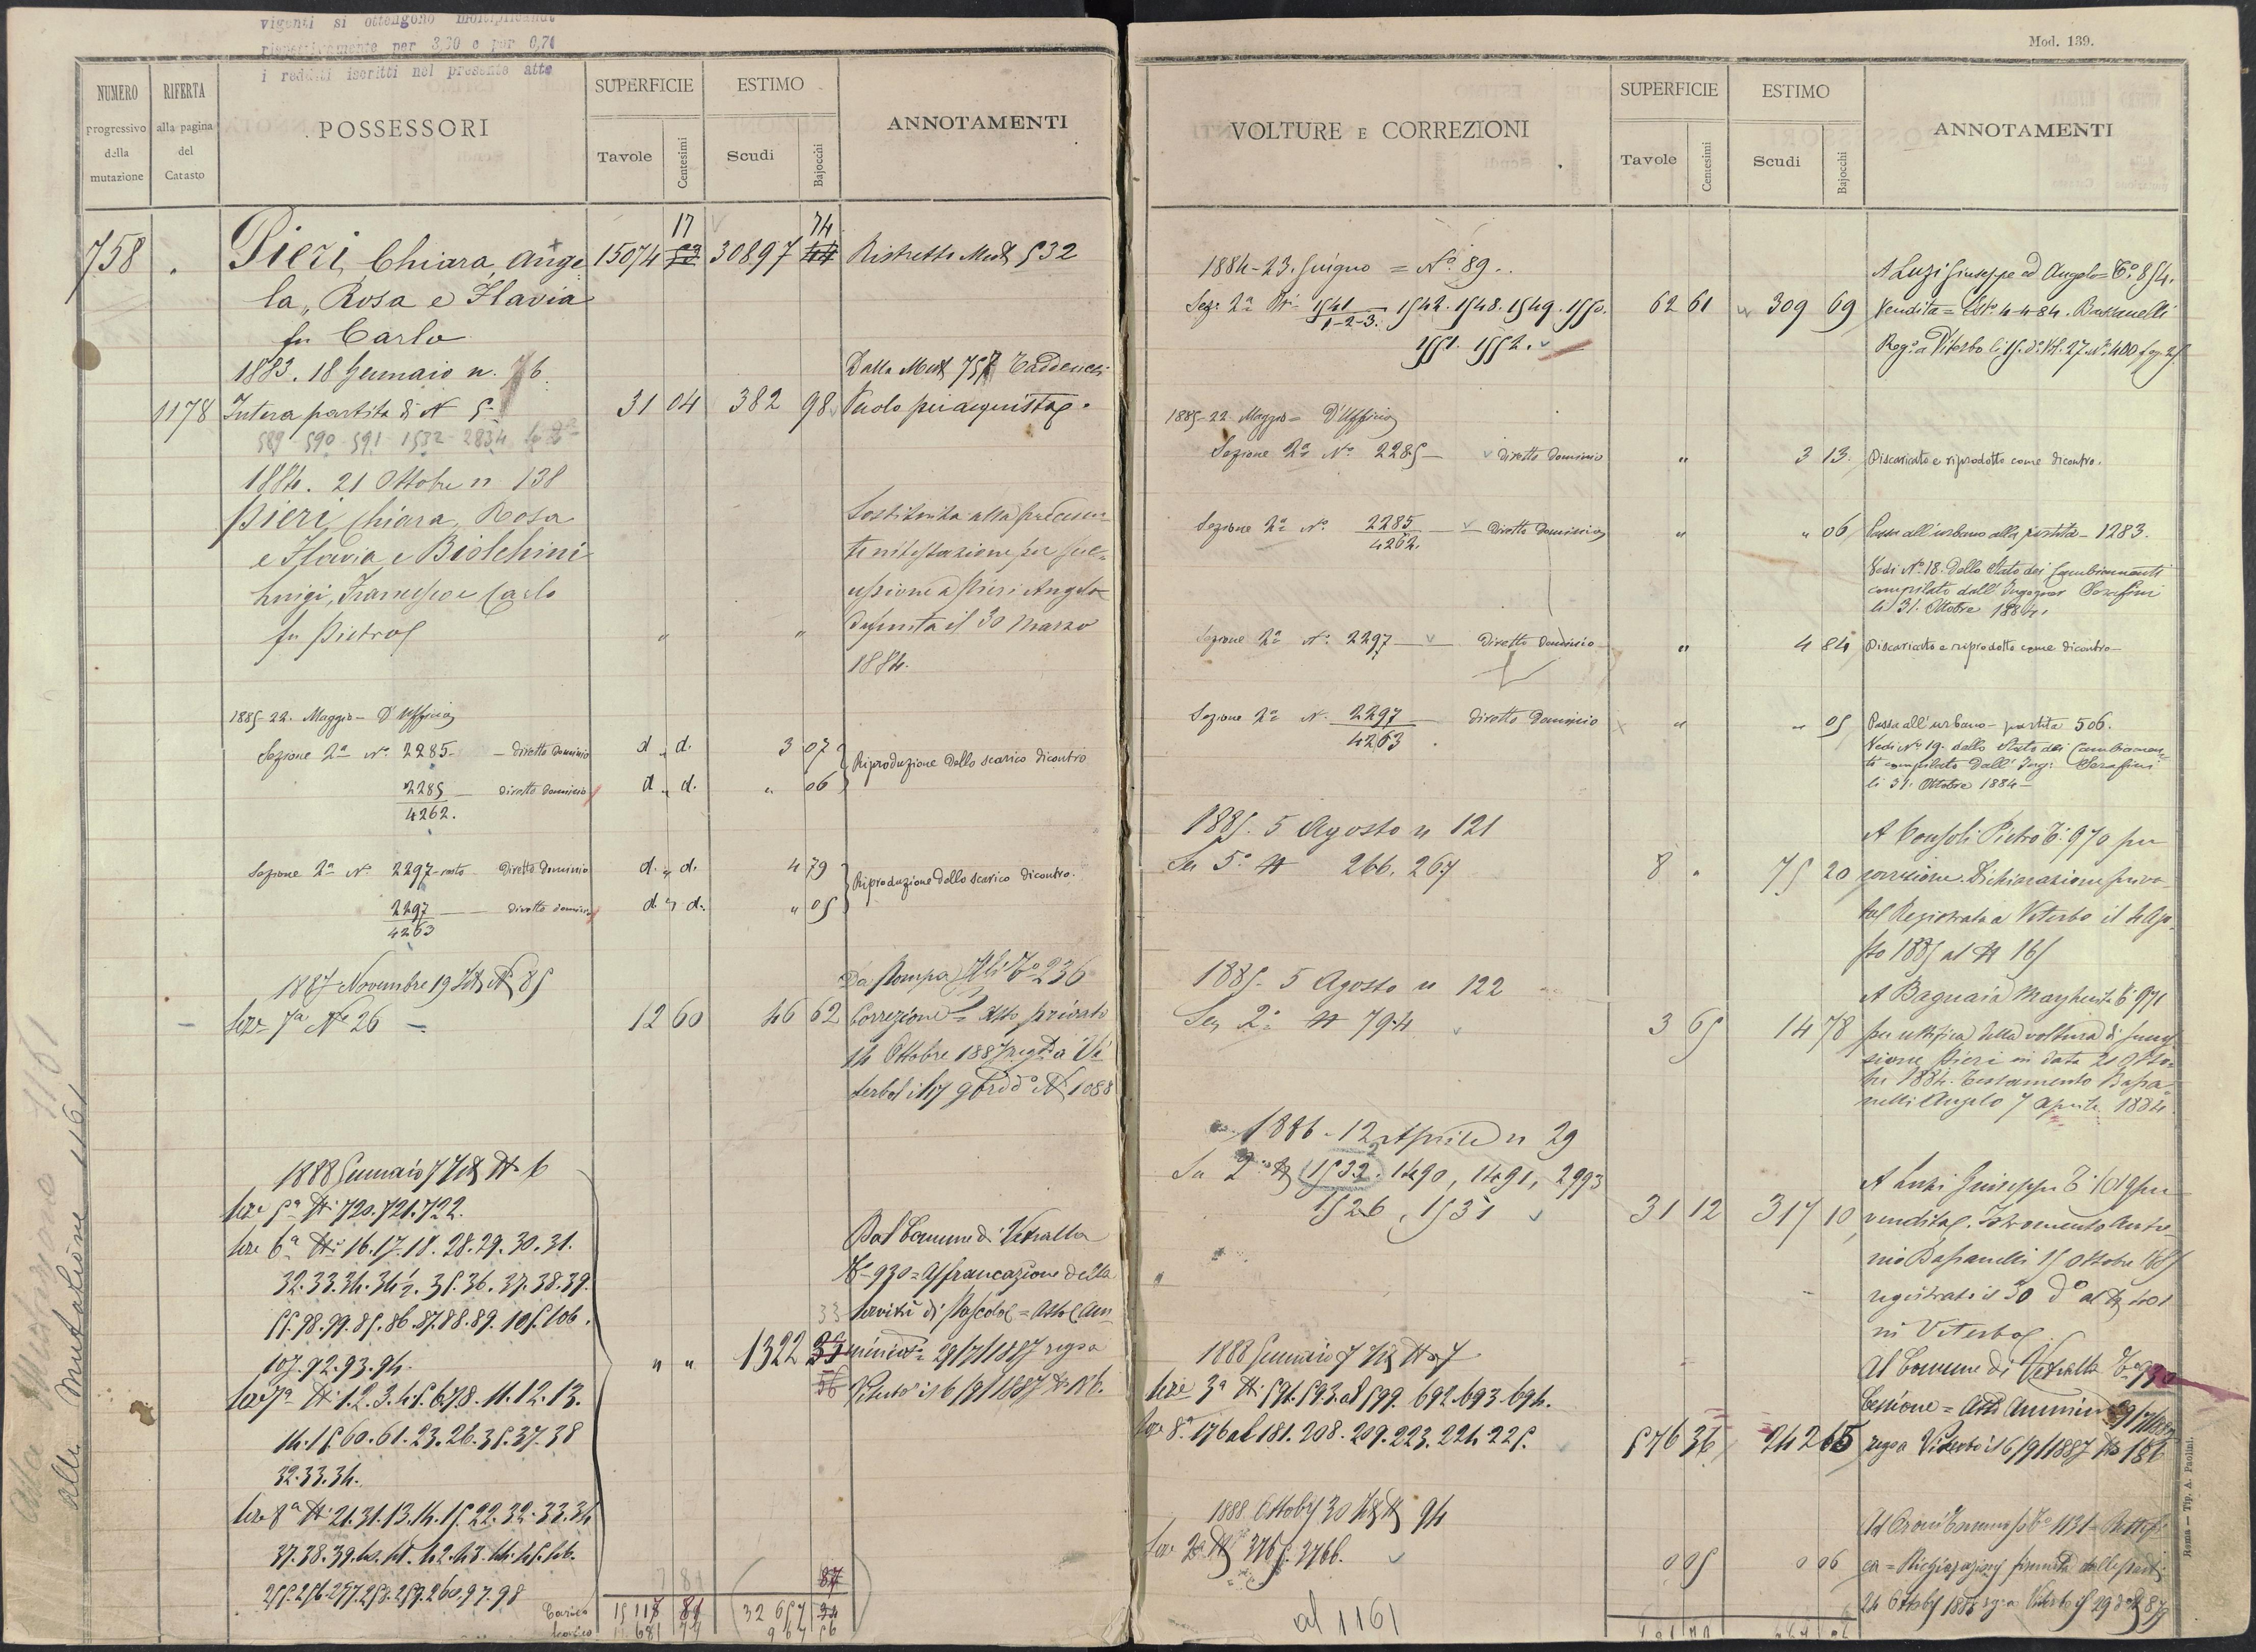 vigenti si ottengono moltiplicand
rispettivamente per 3,30 e per 0,74
i redditi iscritti nel presente atto
NUMERO
progressivo
della
mutazione
RIFERTA
alla pagina
del
Catasto
POSSESSORI
SUPERFICIE
Tavole
Centesimi
ESTIMO
Scudi
Bajocchi
ANNOTAMENTI
17 74
758 Pieri Chiara, Ange 15074 30897 Ristretto Mut 532
la, Rosa e Flavia
fu Carlo
1883. 18 Gennaio n. 76 Dalla Mut 757
1178 Intera partita di N 5 31 04 382 98 per acquisto
589 590 591 1532 2834
1884. 21 Ottobre n 138
Pieri Chiara, Rosa Sostituita alla preceden
e Flavia e Biolchini te intestazione per suc
Luigi, Francesco e Carlo cessione a Pieri Angela
fu Pietro " " defunta il 30 Marzo
1884.
1885-22. Maggio - D'Ufficio
Sezione 2a No 2285 - diretto dominio d " d. 3 07 Riproduzione dello scarico dicontro
2285 - diretto dominio d " d. " 06
4262.
Sezione 2a No 2297 resto diretto dominio d. " d. 4 79 Riproduzione dello scarico dicontro.
2297 - diretto dominio d. " d. " 05
4263
1887 Novembre 19 N 85 Da Pompa To 236
Sez 7a No 26 - 12 60 46 62 Correzione = Atto privato
14 Ottobre 1887 reg a Vi
terbo No 1088
1888 Gennaio 7 N 6
Sez 5a N 720.721.722.
Sez 6a N 16.17.18.28.29.30.31.
32.33.34.34½.35.36.37.38.39. Dal Comune di Vetralla
55.98.99.85.86.87.88.89.105.106. To 930 = Affrancazione della
107.92.93.94. 33 servitù di Pascolo = Atto Am
Sez 7a N 1.2.3.4.5.6.7.8.11.12.13. " " 1322 29/7/1887 reg a
14.15.60.61.23.26.35.37.38 Viterbo il 6/9/1887 N 186.
32.33.34.
Sez 8a N 21.31.13.14.15.22.32.33.34
37.38.39.40.41.42.43.44.45.46.
255.256.257.258.259.260.97.98
Carico 15118 81 32 657
Scarico
Alla Mutazione 1161
alla Mutazione 1161
Mod. 139.
VOLTURE E CORREZIONI
SUPERFICIE
Tavole
Centesimi
ESTIMO
Scudi
Bajocchi
ANNOTAMENTI
1884-23. Giugno = No 89. A Luzi Giuseppe ed Angelo = To 854.
Sez. 2a Ni 1541 1542.1548.1549.1550. 62 61 309 69 Vendita = Isto 4-4-84. Bassanelli
1-2-3. 1551. 1552. Rego a Viterbo
1885-22 Maggio = D'Ufficio
Sezione 2a No 2285 - diretto dominio " 3 13. Discaricato e riprodotto come dicontro.
Sezione 2a No 2285 - diretto dominio " " 06 Passa all'urbano alla partita - 1283.
4262.
Vedi No 18. dello Stato dei Cambiamenti
compilato dall'Ingegner Serafini
li 31. Ottobre 1884.
Sezione 2a No 2297 - diretto dominio " 4 84 Discaricato e riprodotto come dicontro -
Sezione 2a N. 2297 - diretto dominio " " 05 Passa all'urbano - partita 506.
4263 Vedi No 19. dello Stato dei Cambiamen
ti compilato dall'Ing: Serafini
li 31. Ottobre 1884 -
1885. 5 Agosto n 121 A Consoli Pietro To 970 per
Sez 5a N 266. 267 8 " 75 20 correzione. Dichiarazione priva
ta Registrata a Viterbo il 4 Ago
sto 1885 al N 165
1885- 5 Agosto n 122 A Bagnaia Margherita To 971
Sez 2a N 794 3 65 14 78 per rettifica della voltura di succes
sione Pieri in data 21 Otto
bre 1884. Testamento Bassa
nelli Angelo 7 Aprile 1884.
1886 - 12 Aprile n 29
Sez 2a N 1532. 1490, 1491, 2993 A Luzi Giuseppe To 1019 per
1526, 1531 31 12 317 10 vendita. Istromento Anto
nio Bassanelli 15 Ottobre 1885
registrato il 30 do al N 401
in Viterbo.
1888 Gennaio 7 N 7 Al Comune di Vetralla To 930
Sez 3a N 591.593. al 599. 692.693.694. Cessione = Atto Ammin 29/7/1887
Sez 8a 176 al 181.208.209.223.224.225. 576 36 242 65 reg a Viterbo il 6/9/1887 N 186
1888 Ottobre 30 N 94
Sez 2a N 3765. 3766. 0 05 0 06
al 1161
Roma - Tip. A. Paolini.